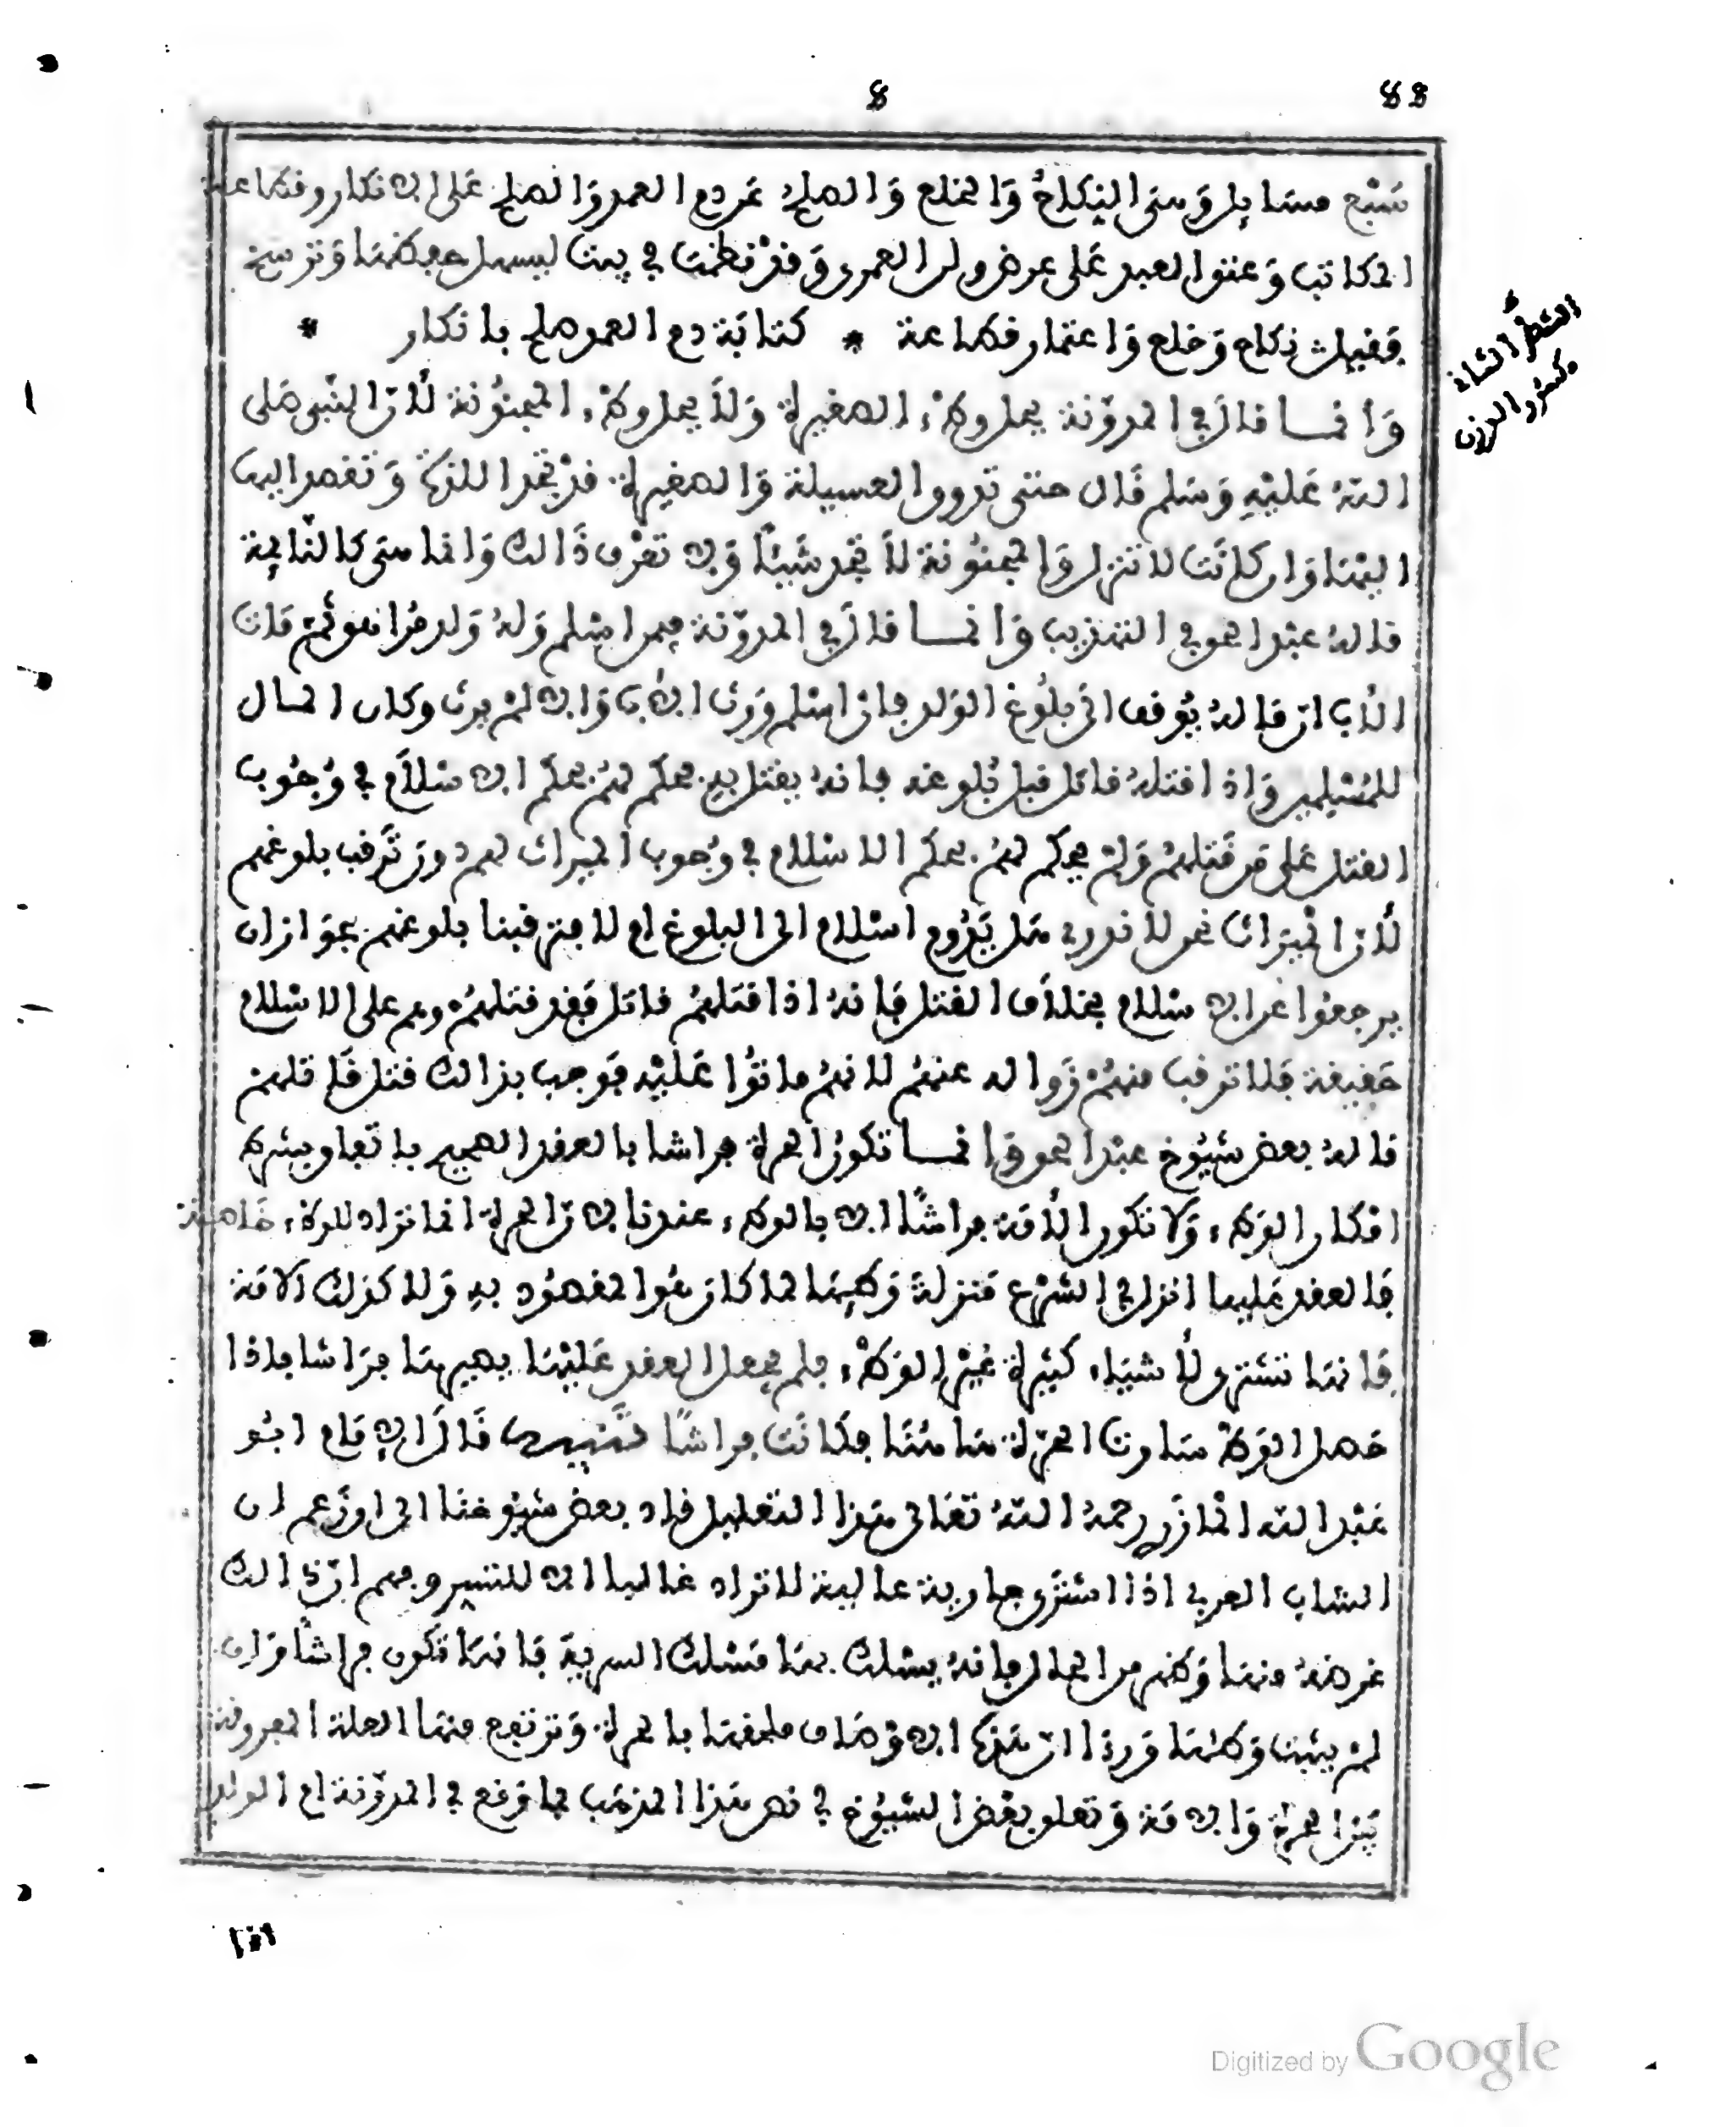 88 8
سبع مسائل وهي النكاح والخلع والصلح عن دم العمد والصلح على الانكار وقطاعة
المكاتب وعتق العبد على عرض ولد العمرى وقد نظمت في بيت ليسهل حفظها وترسخ
فقيل نكاح وخلع واعتمار قطاعة * كتابة دم العمد صلح بانكار *
الشطر الثاني
مكسور الوزن
وانما قال في المدونة يحل وطء الصغيرة ولا يحل وطء المجنونة لأن النبي صلى
الله عليه وسلم قال حتى تذوق العسيلة والصغيرة قد تجد اللذة وتقصد اليها
اليها وان كانت لا تنزل والمجنونة لا تجد شيئا ولا تعرف ذالك وانما هي كالنائمة
قاله عبد الحق في التهذيب وانما قال في المدونة فيمن اسلم وله ولد مراهق ثم مات
الأب ان ماله يوقف الى بلوغ الولد فان اسلم ورث الاب والا لم يرث وكان المال
للمسلمين واذا قتله قاتل قبل بلوغه فانه يقتل به فحكم لهم بحكم الاسلام في وجوب
القتل على من قتلهم ولم يحكم لهم بحكم الاسلام في وجوب الميراث لهم دون ترقب بلوغهم
لأن الميراث نحن لا ندري هل يدوم اسلام الى البلوغ ام لا فترقبنا بلوغهم بجواز ان
يرجعوا عن الاسلام بخلاف القتل فانه اذا قتلهم قاتل فقد قتلهم وهم على الاسلام
حقيقة فلا ترقب منهم زواله عنهم لانهم ماتوا عليه فوجب بذالك قتل قاتلهم
قاله بعض شيوخ عبد الحق وانما تكون الحرة فراشا بالعقد الصحيح باتفاق بشرط
امكان الوطء ولا تكون الأمة فراشا الا بالوطء عندنا لان الحرة انما تراد للوطء خاصة
فالعقد عليها انزل في الشرع منزلة وطئها لما كان هو المقصود به ولا كذلك الامة
فانها تشترى لأشياء كثيرة غير الوطء فلم يجعل العقد عليها يصيرها فراشا فاذا
حصل الوطء ساوت الحرة هاهنا فكانت فراشا تنبيه قال الامام ابو
عبد الله المازري رحمه الله تعالى هذا التعليل قاد بعض شيوخنا الى ان زعم ان
الشاب العزب اذا اشترى جارية عالية لا تراد غالبا الا للتسري وفهم ان ذالك
غرضه منها وظهر من الحال فانه يسلك بها مسلك السرية فانها تكون فراشا وان
لم يثبت وطئها ورءا ان هذه الاوصاف ملحقها بالحرة وترتفع منها العلة المفرقة
بين الحرة والامة وتعلق بعض الشيوخ في نصر هذا المذهب بما وقع في المدونة ام الولد
اذا
Digitized by Google